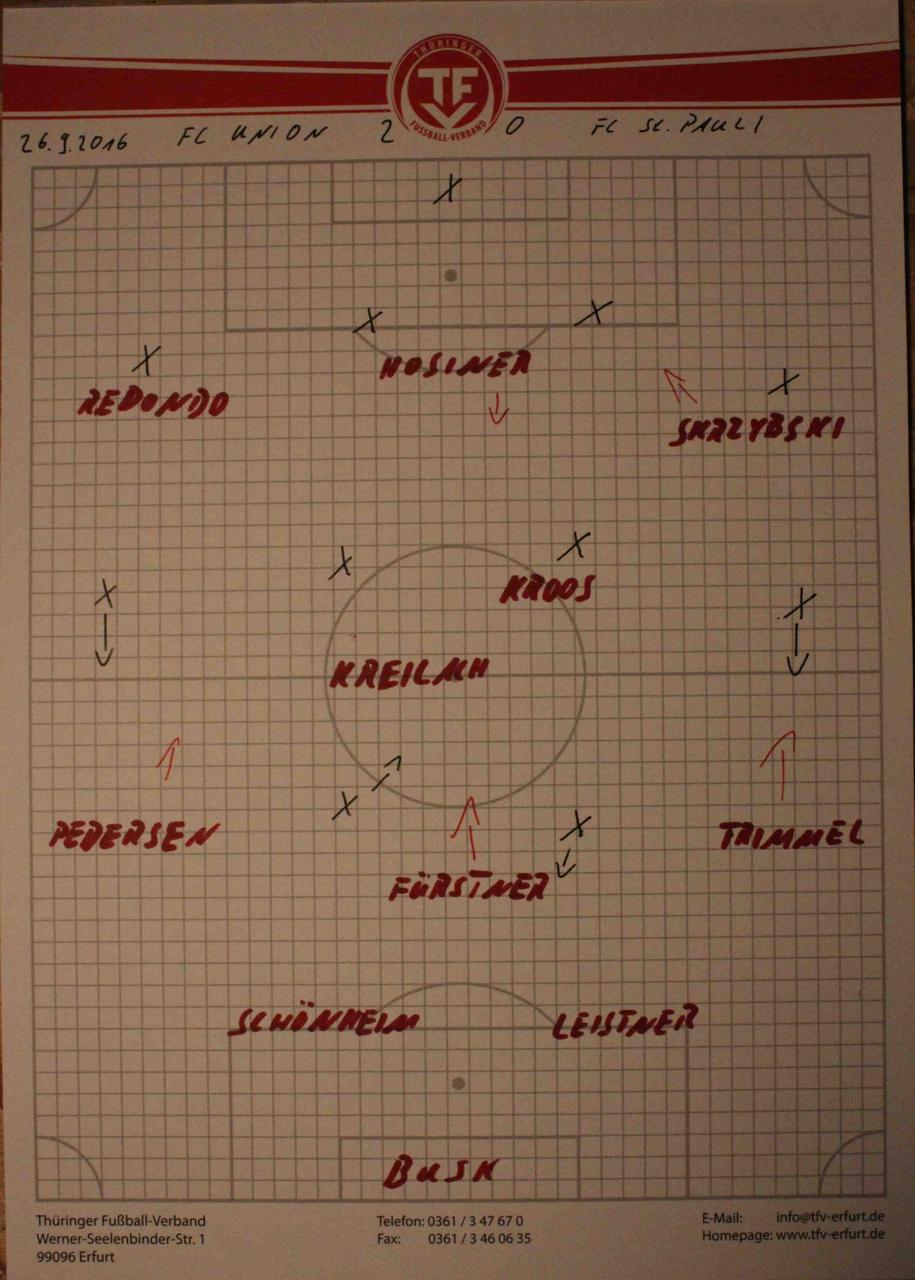 THÜRINGER
TF
FUSSBALL-VERBAND
26.9.2016 FC UNION 2 0 FC St. PAULI
HOSINER
REDONDO
SKRZYBSKI
KROOS
KREILACH
PEDERSEN
TRIMMEL
FÜRSTNER
SCHÖNHEIM LEISTNER
BUSK
Thüringer Fußball-Verband
Werner-Seelenbinder-Str. 1
99096 Erfurt
Telefon: 0361 / 3 47 67 0
Fax: 0361 / 3 46 06 35
E-Mail: info@tfv-erfurt.de
Homepage: www.tfv-erfurt.de